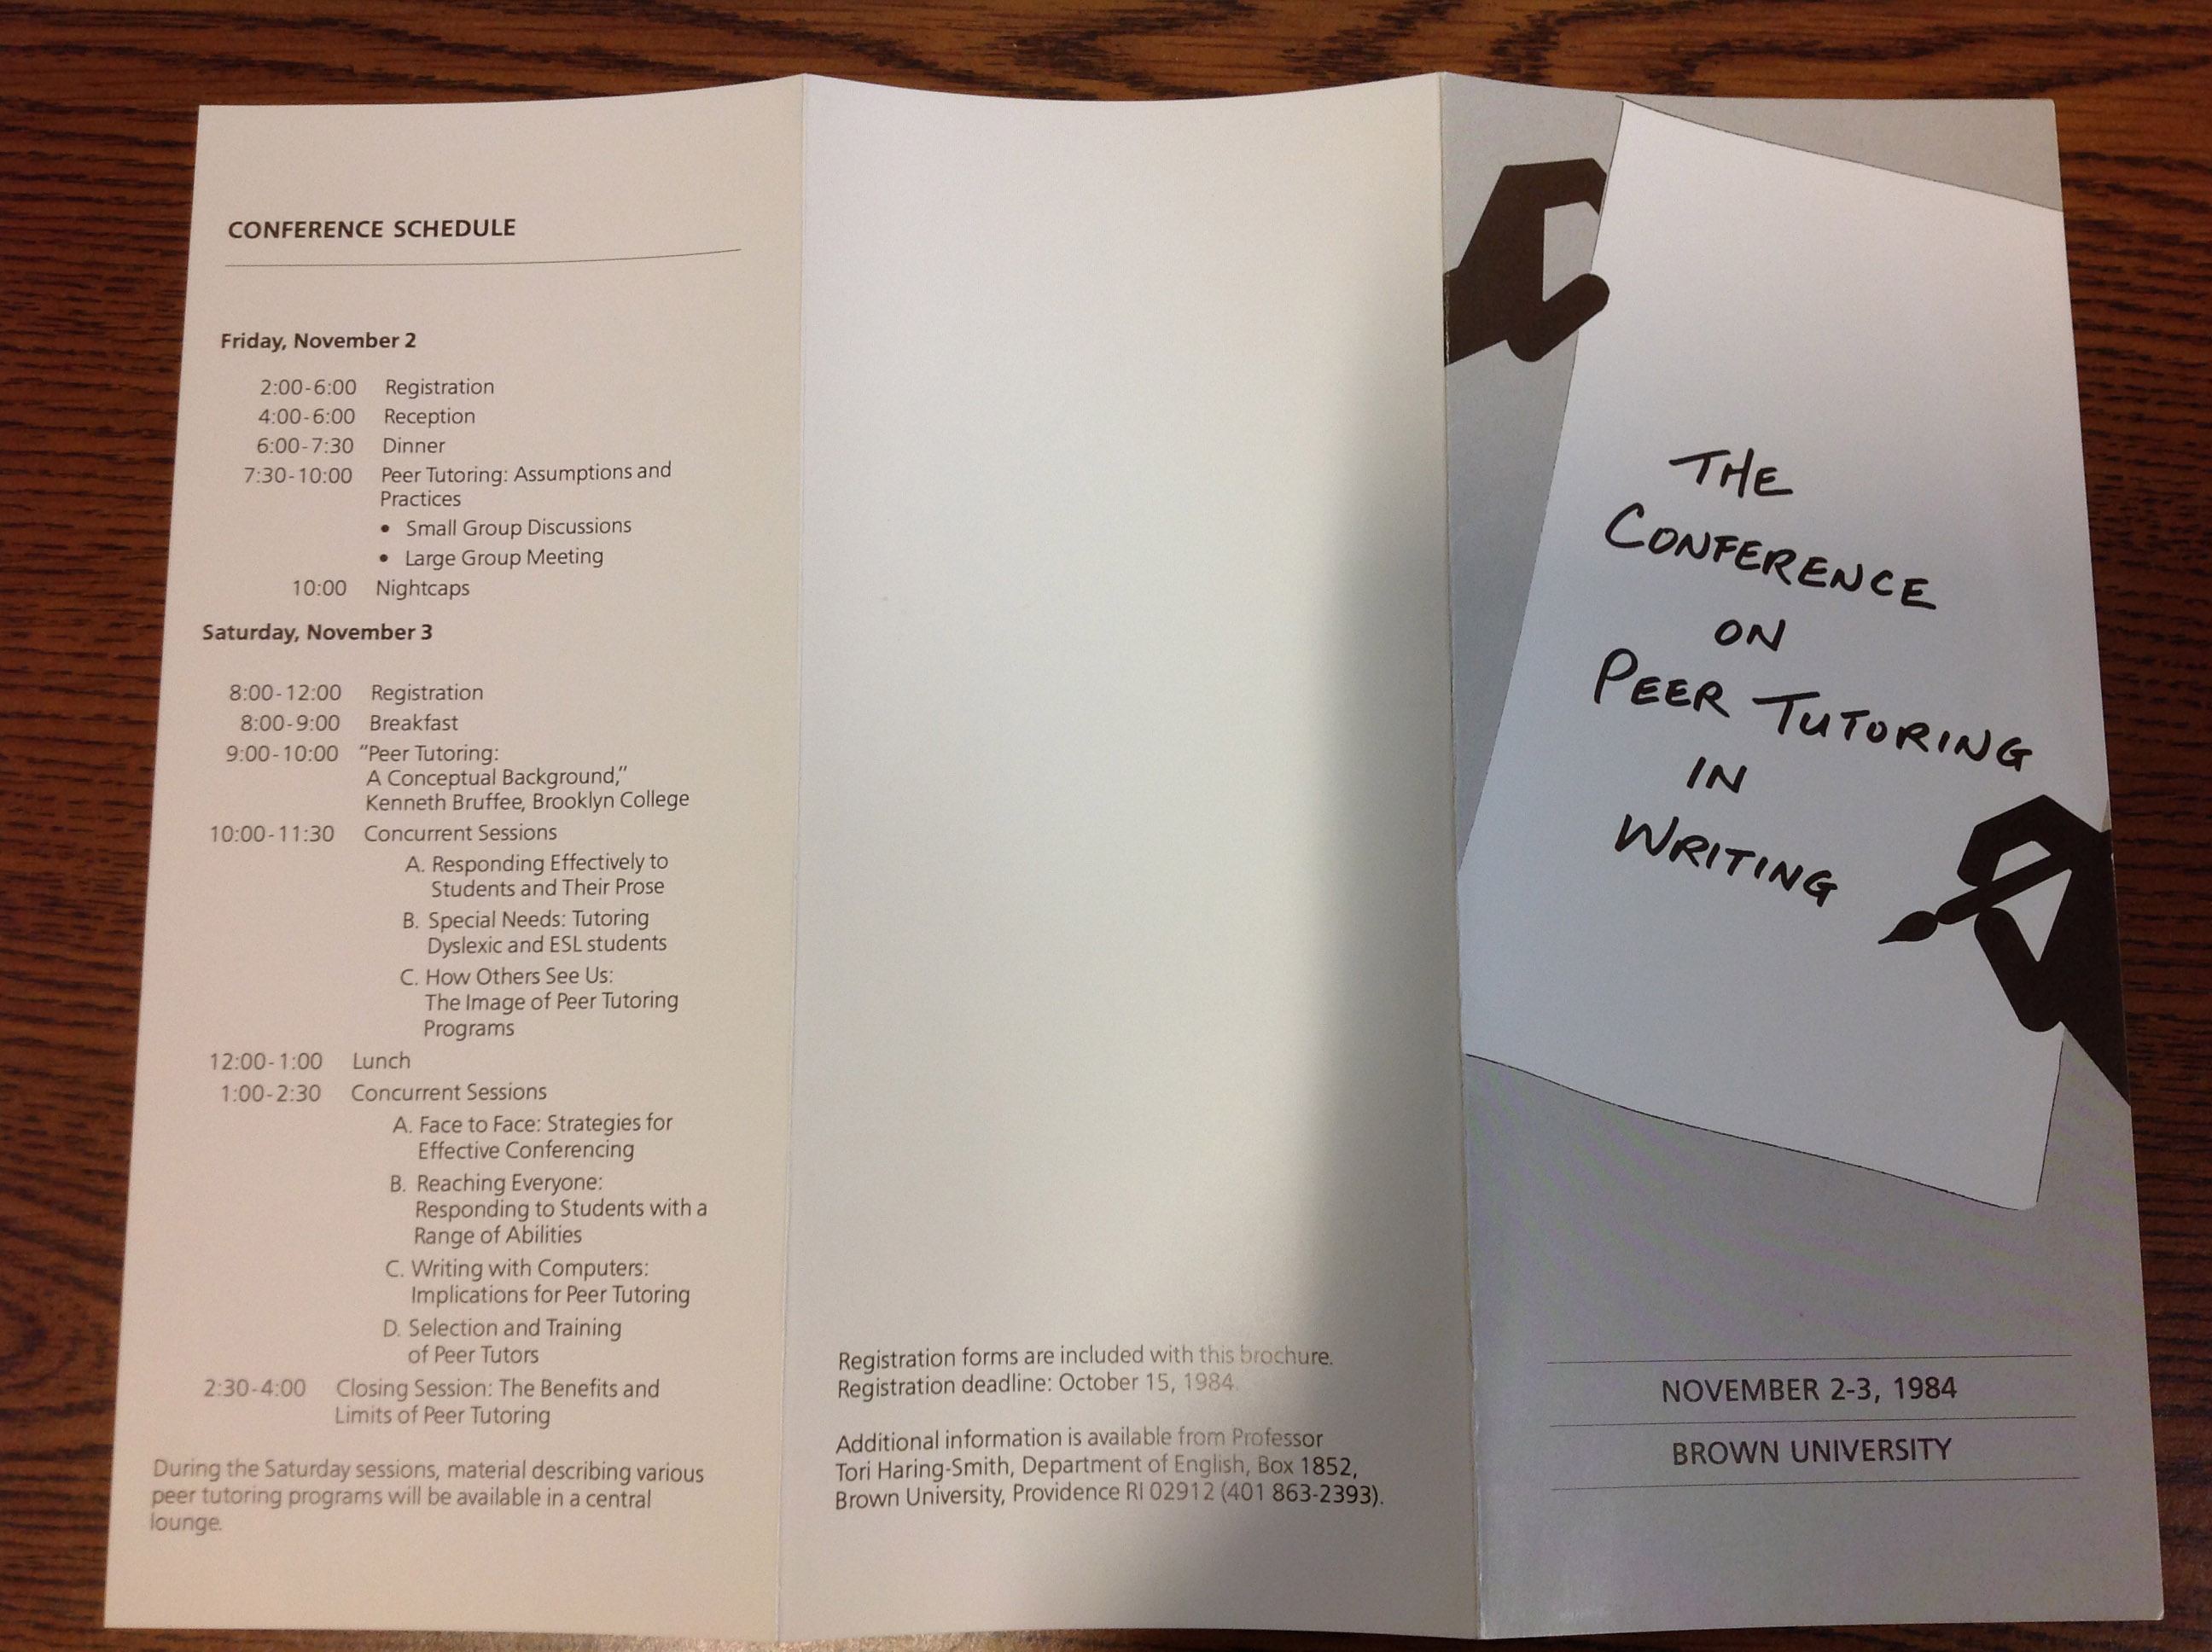 CONFERENCE SCHEDULE
Friday, November 2
2:00-6:00 Registration
4:00-6:00 Reception
6:00-7:30 Dinner
7:30-10:00 Peer Tutoring: Assumptions and
Practices
• Small Group Discussions
• Large Group Meeting
10:00 Nightcaps
Saturday, November 3
8:00-12:00 Registration
8:00-9:00 Breakfast
9:00-10:00 “Peer Tutoring:
A Conceptual Background,”
Kenneth Bruffee, Brooklyn College
10:00-11:30 Concurrent Sessions
A. Responding Effectively to
Students and Their Prose
B. Special Needs: Tutoring
Dyslexic and ESL students
C. How Others See Us:
The Image of Peer Tutoring
Programs
12:00-1:00 Lunch
1:00-2:30 Concurrent Sessions
A. Face to Face: Strategies for
Effective Conferencing
B. Reaching Everyone:
Responding to Students with a
Range of Abilities
C. Writing with Computers:
Implications for Peer Tutoring
D. Selection and Training
of Peer Tutors
2:30-4:00 Closing Session: The Benefits and
Limits of Peer Tutoring
During the Saturday sessions, material describing various
peer tutoring programs will be available in a central
lounge.
Registration forms are included with this brochure.
Registration deadline: October 15, 1984.
Additional information is available from Professor
Tori Haring-Smith, Department of English, Box 1852,
Brown University, Providence RI 02912 (401 863-2393).
THE
CONFERENCE
ON
PEER TUTORING
IN
WRITING
NOVEMBER 2-3, 1984
BROWN UNIVERSITY